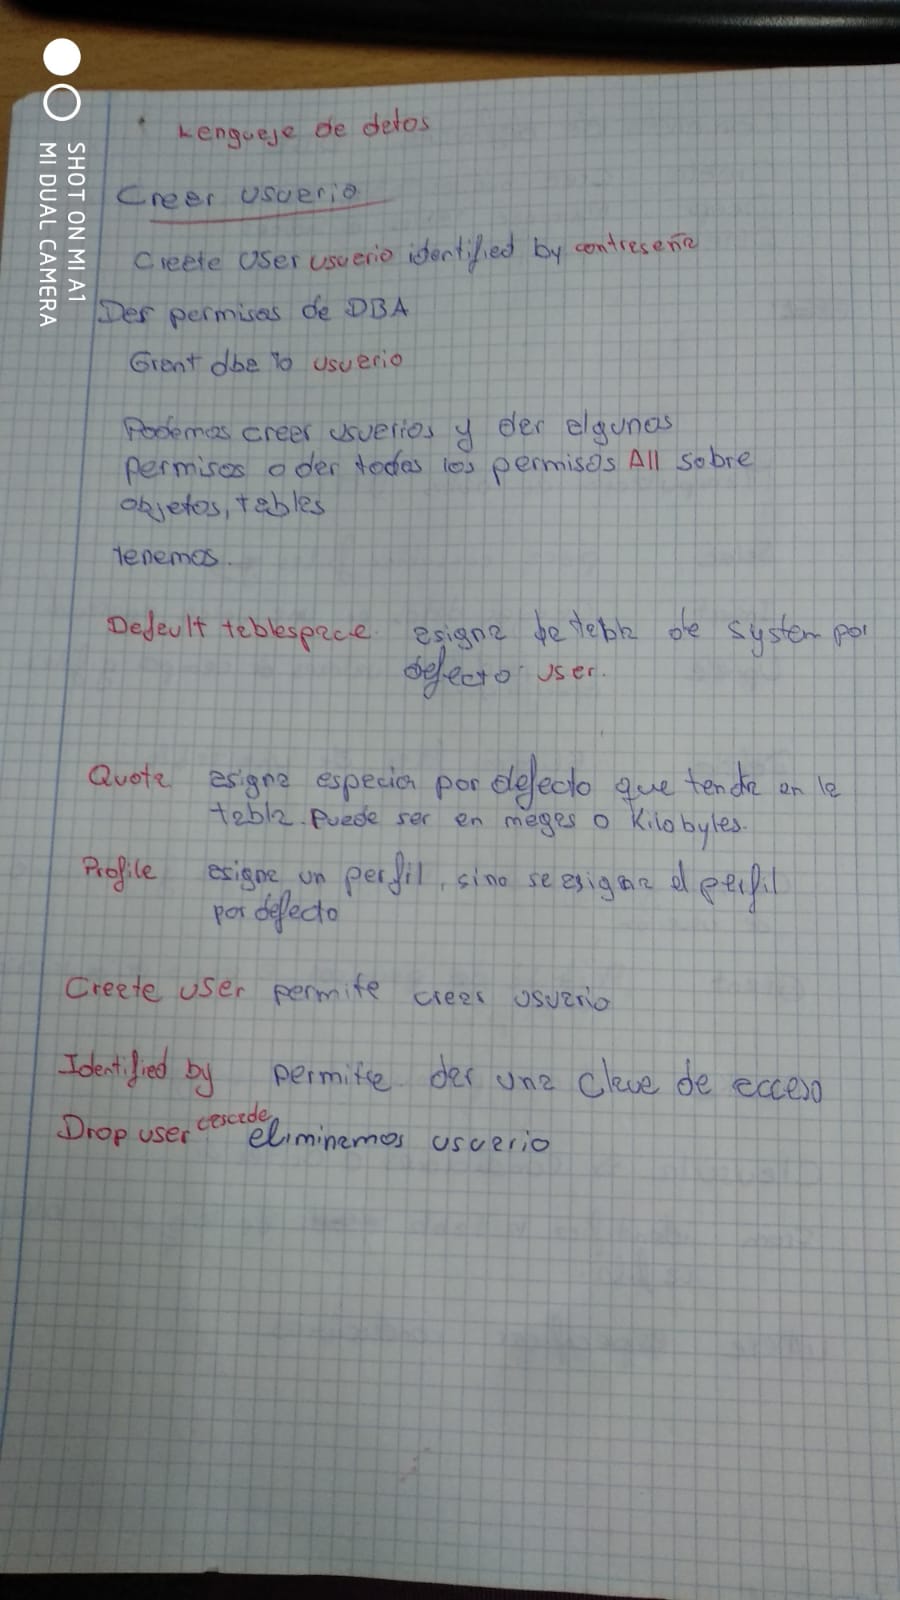 Lenguaje de datos
Crear usuario
Create user usuario identified by contraseña
Dar permisos de DBA
Grant dba to usuario
Podemos crear usuarios y dar algunos
permisos o dar todos los permisos All sobre
objetos, tablas
tenemos.
Default tablespace asigna tabla de system por
defecto user.
Quota asigna espacion por defecto que tendra en la
tabla. Puede ser en megas o Kilobytes.
Profile asigna un perfil, sino se asigna el perfil
por defecto
Create user permite crear usuario
Identified by permite dar una clave de acceso
Drop user cascade eliminamos usuario
SHOT ON MI A1
MI DUAL CAMERA